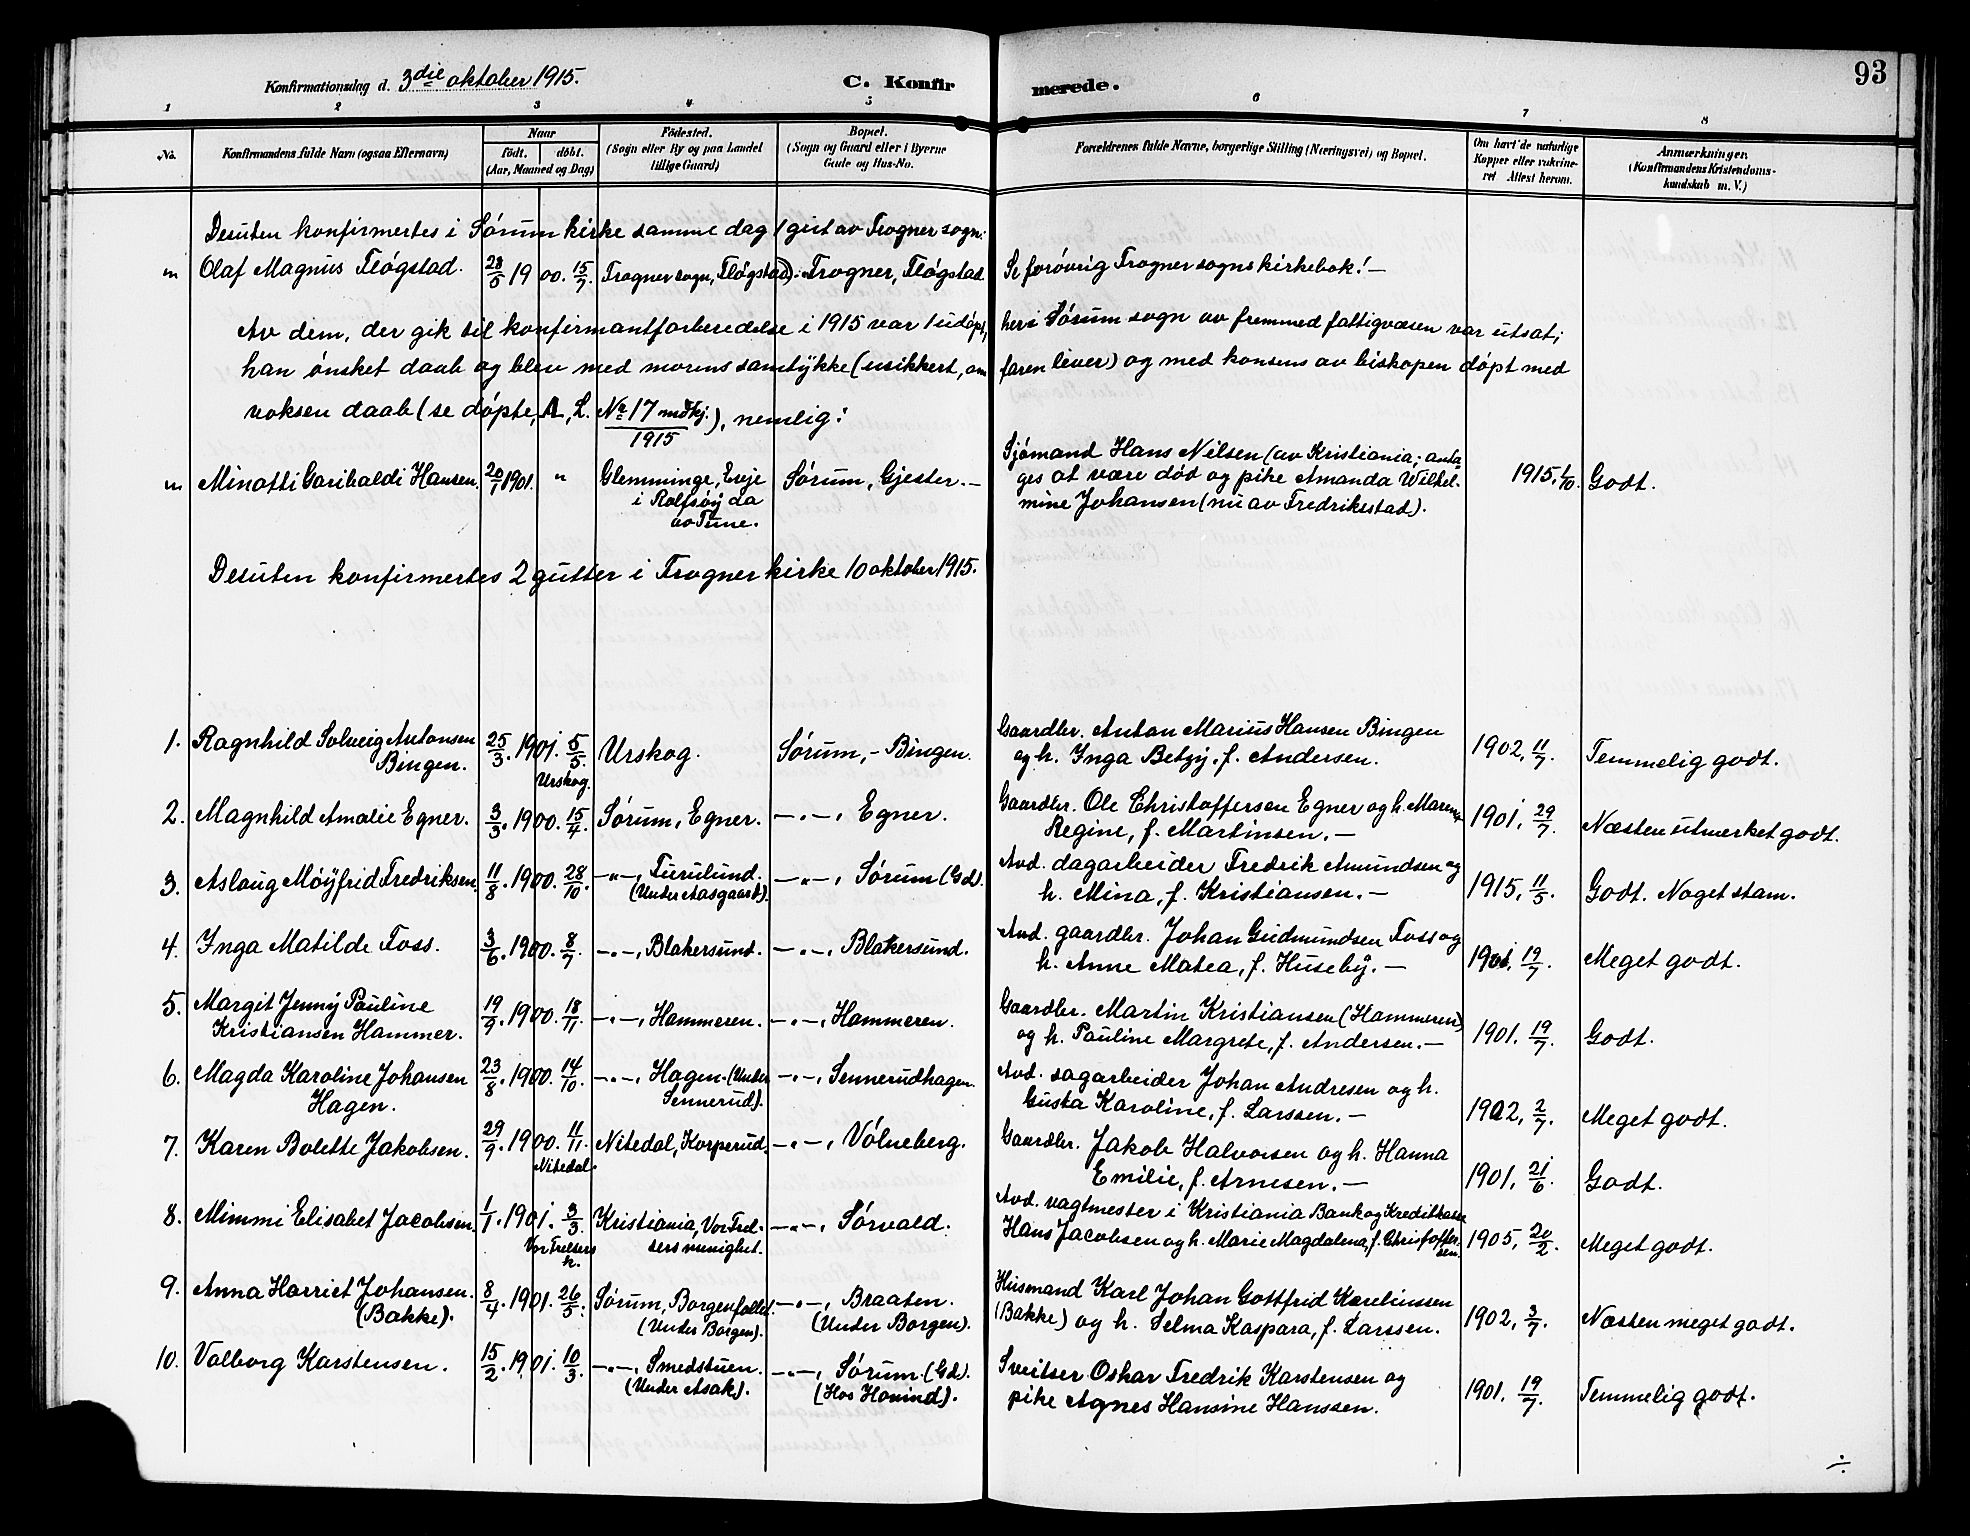 93
Konfirmationsdag d. 3die oktober 1915.
C. Konfirmerede.
1 2 3 4 5 6 7 8
No.
Konfirmandens fulde Navn (ogsaa Efternavn)
Naar
födt. döbt.
(Aar, Maaned og Dag)
Födested.
(Sogn eller By og paa Landet
tillige Gaard)
Bopæl.
(Sogn og Gaard eller i Byerne
Gade og Hus-No.
Forældrenes fulde Navne, borgerlige Stilling (Næringsvei) og Bopæl.
Om havt de naturlige
Kopper eller vakcine-
ret Attest herom.
Anmærkninger.
(Konfirmandens Kristendoms-
kundskab m. V.)
Desuten konfirmertes i Sørum kirke samme dag 1 gut av Frogner sogn:
" Olaf Magnus Fløgstad. 28/5 1900. 15/7. Frogner sogn, Fløgstad): Frogner, Fløgstad. Se forøvrig Frogner sogns kirkebok! —
Av dem, der gik til konfirmantforberedelse i 1915 var 1 udøpt, her i Sørum sogn av fremmed fattigvæsen var utsat;
han ønsket daab og blev med morens samtykke (usikkert, om faren lever) og med konsens av biskopen døpt med
voksen daab (se døpte, A, L. No 17 mdkj./1915), nemlig:
" Minotti Garibaldi Hansen. 20/1 1901. " Glemminge, Evje Sørum, Gjester. — Sjømand Hans Nilsen (av Kristiania; anta- 1915, 1/10. Godt.
i Rolfsøy da ges at være død og pike Amanda Wilhel-
av Tune. mine Johansen (nu av Fredrikestad).
Desuten konfirmertes 2 gutter i Frogner kirke 10 oktober 1915.
1. Ragnhild Solveig Antonsen 25/3. 1901. 5/5. Urskog. Sørum, - Bingen. Gaardbr. Anton Marius Hansen Bingen 1902, 11/7. Temmelig godt.
Bingen. Urskog. og h. Inga Betzy, f. Andersen.
2. Magnhild Amalie Egner. 3/3. 1900. 15/4. Sørum, Egner. —"—, Egner. Gaardbr. Ole Christoffersen Egner og h. Maren 1901, 29/7. Næsten utmerket godt.
Regine, f. Martinsen. —
3. Aslaug Møyfrid Fredriksen. 11/8. 1900. 28/10. —"—, Furulund. —"—, Sørum (Gd). Avd. dagarbeider Fredrik Amundsen og 1915, 11/5. Godt. Noget stam.
(Under Aasgaard). h. Mina, f. Kristiansen. —
4. Inga Matilde Foss. 3/6. 1900. 8/7. —"—, Blakersund. —"—, Blakersund. Avd. gaardbr. Johan Gudmundsen Foss og 1901, 19/7. Meget godt.
h. Anne Matea, f. Huseby. —
5. Margit Jenny Pauline 19/9. 1900. 18/11. —"—, Hammeren. —"—, Hammeren. Gaardbr. Martin Kristiansen (Hammeren) 1901. 19/7. Godt.
Kristiansen Hammer. og h. Pauline Margrete, f. Andersen. —
6. Magda Karoline Johansen 23/8. 1900. 14/10. —"—, Hagen. (Under —"—, Sennerudhagen. Avd. sagarbeider Johan Andresen og h. 1902, 2/7. Meget godt.
Hagen. Sennerud). Gusta Karoline, f. Larssen. —
7. Karen Bolette Jakobsen. 29/9. 1900. 11/11. Nitedal, Korperud. —"—, Vølneberg. Gaardbr. Jakob Halvorsen og h. Hanna 1901, 21/6. Godt.
Nitedal. Emilie, f. Arnesen. —
8. Mimmi Elisabet Jacobsen. 1/1. 1901. 3/3. Kristiania, Vor Frel- —"—, Sørvald. Avd. vagtmester i Kristiania Bank og Kreditkasse 1905, 20/2. Meget godt.
Vor Frelsers sers menighet. Hans Jacobsen og h. Marie Magdalena, f. Christoffer-
k. sen.
9. Anna Harriet Johansen. 8/4. 1901. 26/5. Sørum, Borgenfallet. —"—, Braaten. Husmand Karl Johan Gottfrid Karelinssen 1902, 3/7. Næsten meget godt.
(Bakke). (Under Borgen). (Under Borgen). (Bakke) og h. Selma Kaspara, f. Larssen.
10. Valborg Karstensen. 15/2. 1901. 10/3. —"—, Smedstuen. —"—, Sørum. (Gd). Sveitser Oskar Fredrik Karstensen og 1901. 19/7. Temmelig godt.
(Under Asak). (Hos Hovind). pike Agnes Hansine Hanssen.